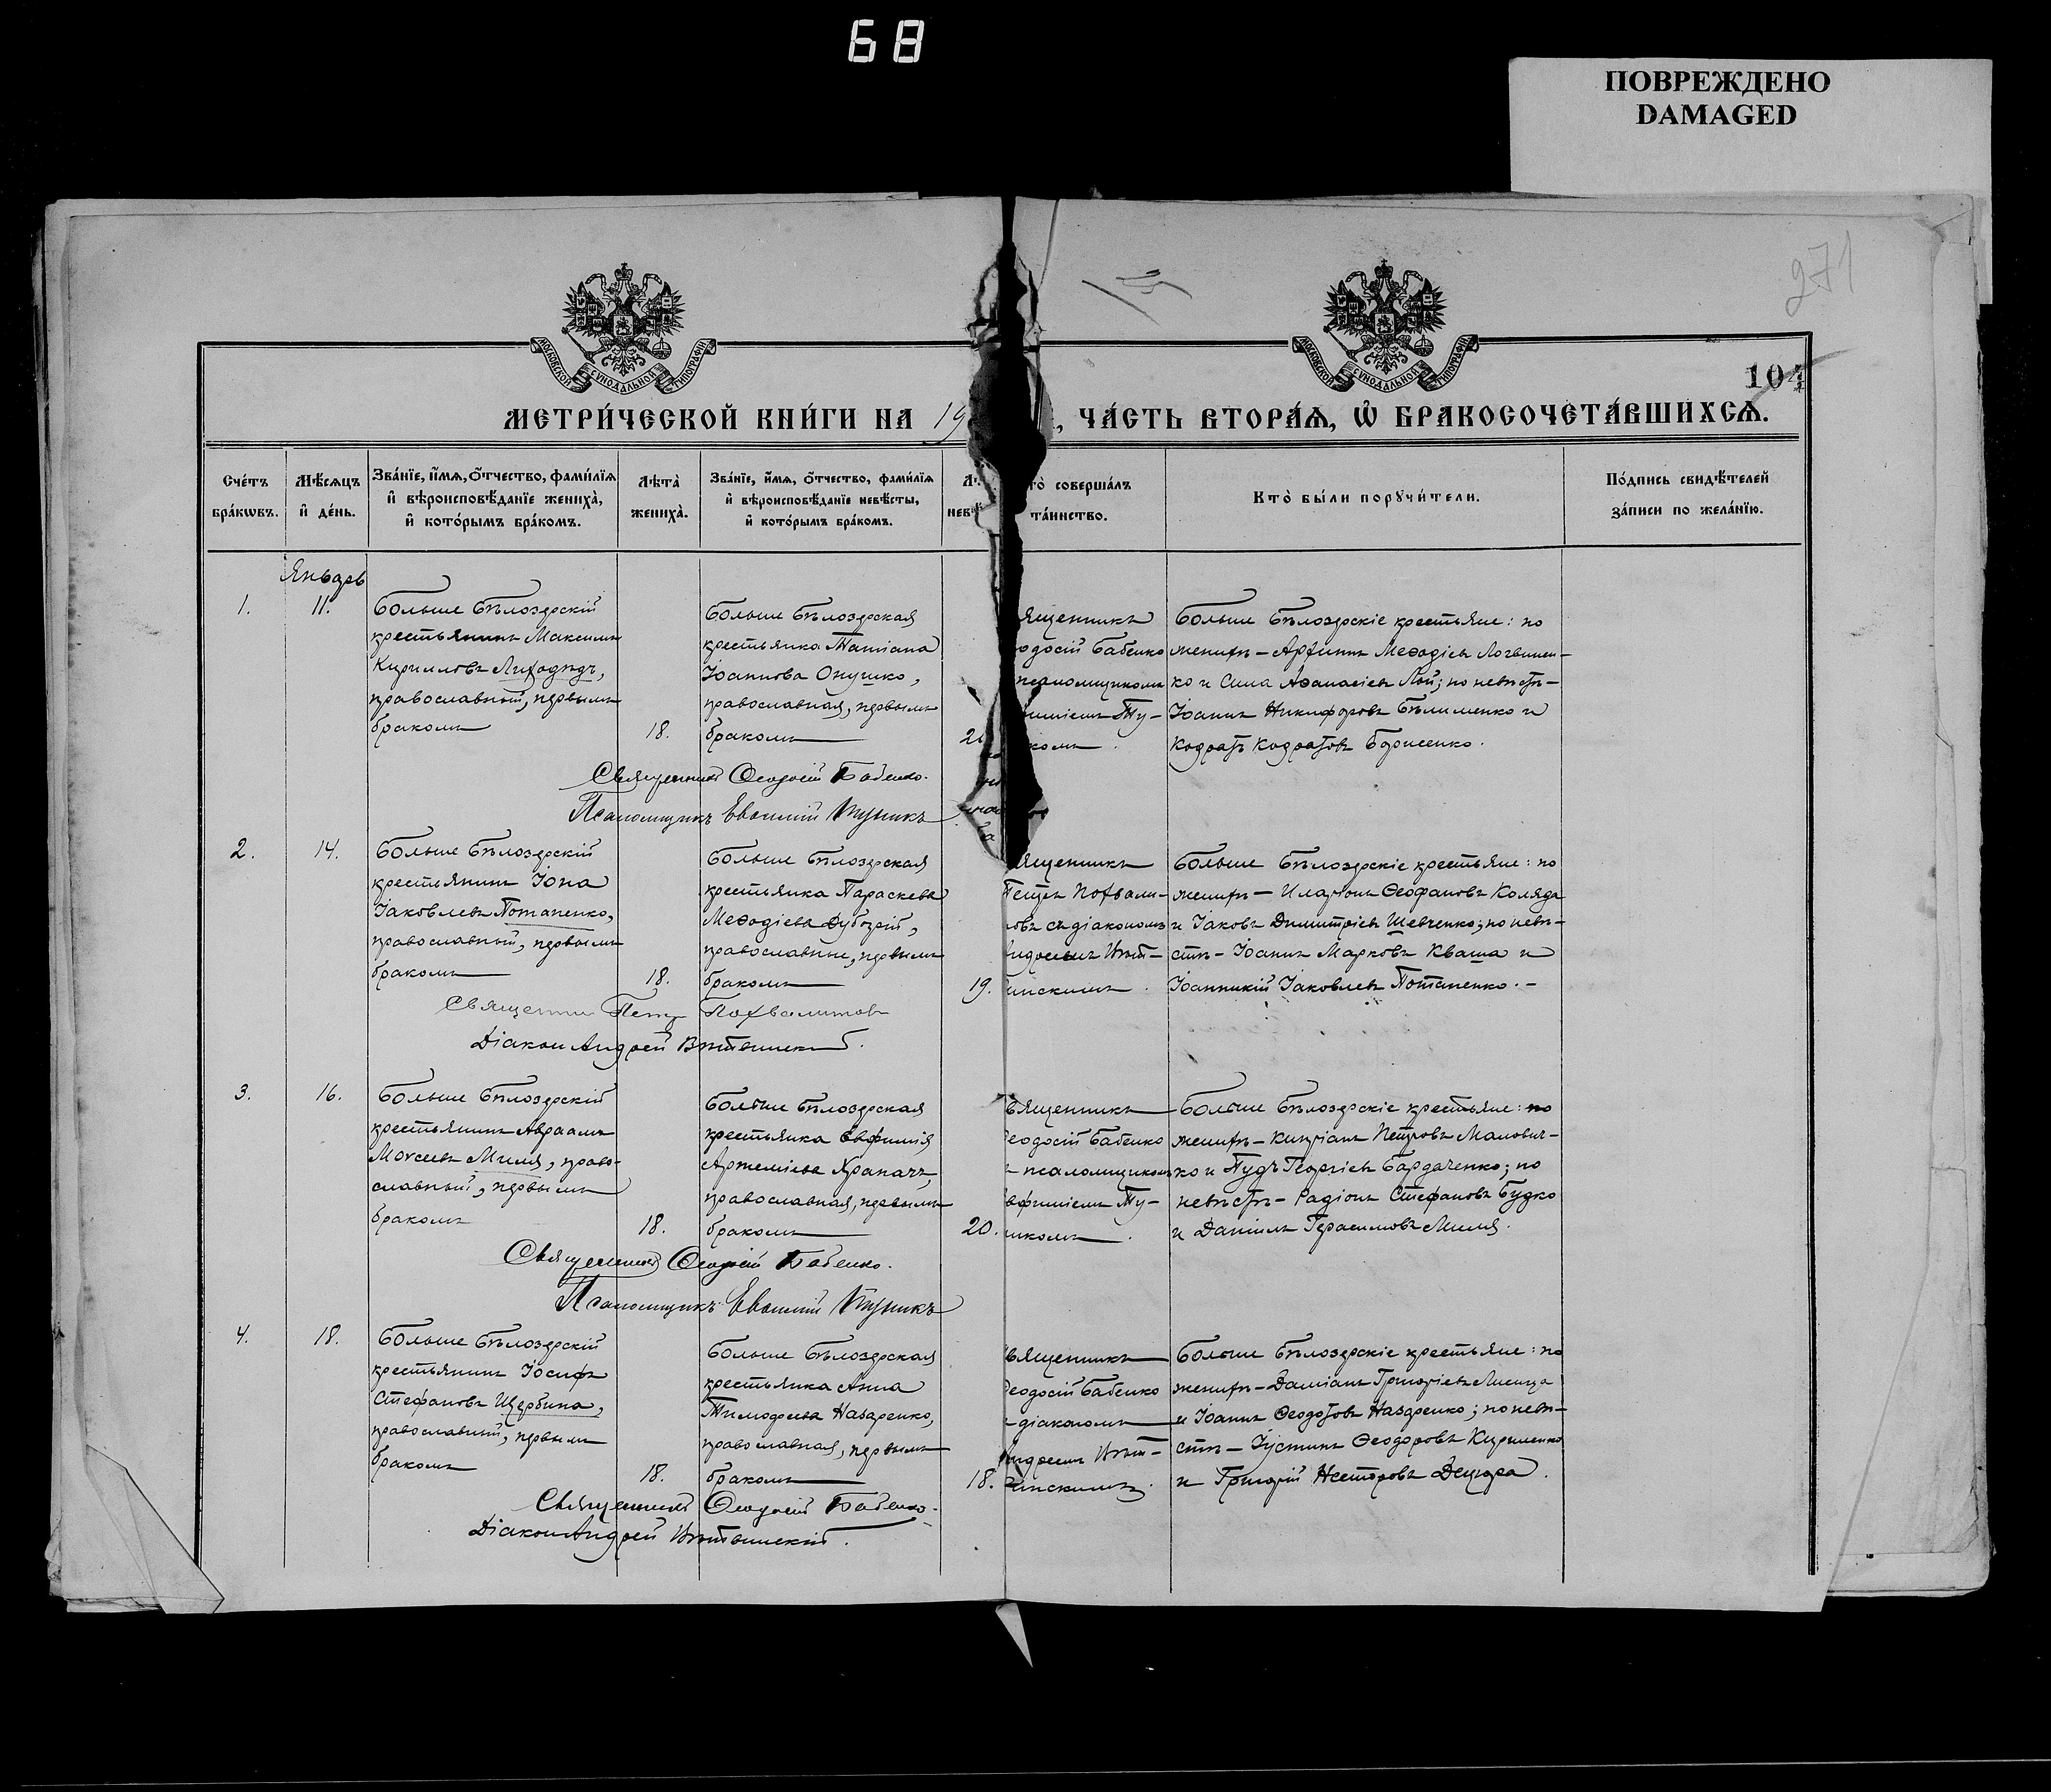 68
ПОВРЕЖДЕНО
DAMAGED
271
МОСКОВСКОЙ СѴНОДАЛЬНОЙ ТИПОГРАФІИ
МОСКОВСКОЙ СѴНОДАЛЬНОЙ ТИПОГРАФІИ
104
МЕТРИ́ЧЕСКОЙ КНИ́ГИ НА 19
, ЧА́СТЬ ВТОРА́Ѧ, Ѽ БРАКОСОЧЕТА́ВШИХСѦ.
Сче́тъ бра́кѡвъ.
Мѣ́сѧцъ и҆ де́нь.
Зва́нїе, и҆́мѧ, ѻ҆́тчество, фами́лїѧ и҆ вѣроисповѣ́данїе жениха̀, и҆ кото́рымъ бра́комъ.
Лѣта̀ жениха̀.
Зва́нїе, и҆́мѧ, ѻ҆́тчество, фами́лїѧ и҆ вѣроисповѣ́данїе невѣ́сты, и҆ кото́рымъ бра́комъ.
то̀ соверша́лъ та́инство.
Кто̀ бы́ли порꙋчи́тели.
По́дпись свидѣ́телей за́писи по жела́нїю.
Январь
1.
11.
Больше Бѣлозерскій
крестьянинъ Максимъ
Кирилловъ Лиходѣдъ,
православный, первымъ
бракомъ
18.
Больше Бѣлозерская
крестьянка Татіана
Іоаннова Онушко,
православная, первымъ
бракомъ
ященникъ
одосій Бабенко
псаломщикомъ
иміемъ Ту-
комъ.
Больше Бѣлозерскіе крестьяне: по
женихѣ – Архипъ Меѳодіевъ Логвинен-
ко и Сила Аѳанасіевъ Лой; по невѣстѣ –
Іоаннъ Никифоровъ Бѣлименко и
Кодратъ Кодратовъ Борисенко.
Священникъ Ѳеодосій Бабенко.
Псаломщикъ Евѳимій Тупикъ
2.
14.
Больше Бѣлозерскій
крестьянинъ Іона
Іаковлевъ Потапенко,
православный, первымъ
бракомъ
18.
Больше Бѣлозерская
крестьянка Параскева
Меѳодіева Дубогрій,
православные, первымъ
бракомъ
19.
ященникъ
Петръ Похвали-
овъ съ діакономъ
ндреемъ Вѣт-
инскимъ.
Больше Бѣлозерскіе крестьяне: по
женихѣ – Иларіонъ Ѳеофановъ Коляда
и Іаковъ Димитріевъ Шевченко; по невѣ-
стѣ – Іоаннъ Марковъ Кваша и
Іоанникій Іаковлевъ Потапенко. –
Священни Петр Похвалитов
Діакон Андрей Вѣтвинскій.
3.
16.
Больше Бѣлозерскій
крестьянинъ Авраамъ
Моѵсеевъ Миля, право-
славный, первымъ
бракомъ
18.
Больше Бѣлозерская
крестьянка Евфимія
Артеміева Храпачъ,
православная, первымъ
бракомъ
20.
вященникъ
еодосій Бабенко
псаломщикомъ
вфиміемъ Ту-
икомъ.
Больше Бѣлозерскіе крестьяне: по
женихѣ – Кипріанъ Петровъ Малович-
ко и Пудъ Георгіевъ Бардаченко; по
невѣстѣ – Радіонъ Стефановъ Будко
и Даніилъ Герасимовъ Миля.
Священникъ Ѳеодосій Бабенко.
Псаломщикъ Евѳимій Тупикъ
4.
18.
Больше Бѣлозерскій
крестьянинъ Іосифъ
Стефановъ Щербина,
православный, первымъ
бракомъ
18.
Больше Бѣлозерская
крестьянка Анна
Тимофеева Назаренко,
православная, первымъ
бракомъ
18.
вященникъ
еодосій Бабенко
діакономъ
ндреемъ Вѣт-
инскимъ.
Больше Бѣлозерскіе крестьяне: по
женихѣ – Даміанъ Григоріевъ Лисица
и Іоаннъ Ѳеодотовъ Назаренко; по невѣ-
стѣ – Іустинъ Ѳеодоровъ Куриленко
и Григорій Несторовъ Децюра.
Священникъ Ѳеодосій Бабенко.
Діакон Андрей Вѣтвинскій.